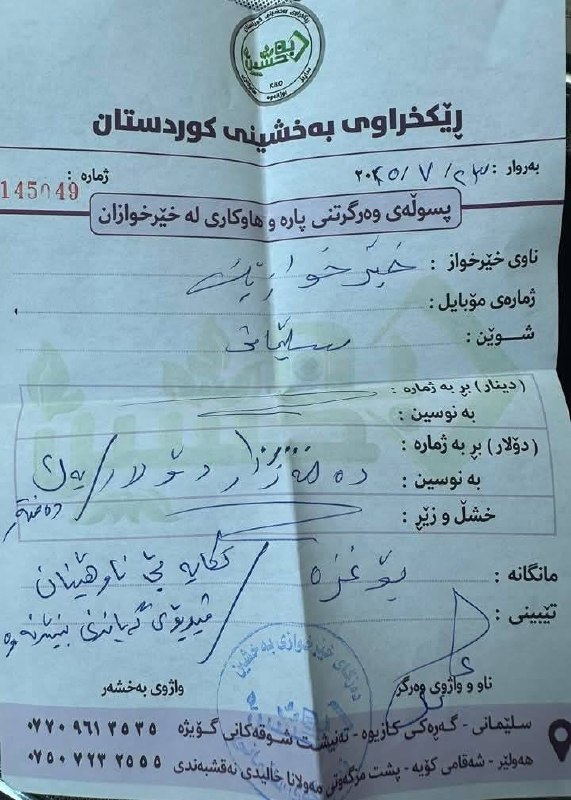 بەخشین
R.K.O
ڕێکخراوی بەخشینی کوردستان
بەروار : ٢٠٢٥/٧/٢٣
ژمارە :
145049
پسوڵەی وەرگرتنی پارە و هاوکاری لە خێرخوازان
ناوی خێرخواز : خێرخوازێك
ژمارەی مۆبایل :
شوێن : سلێمانی
(دینار) بڕ بە ژمارە :
بە نوسین :
(دۆلار) بڕ بە ژمارە :
بە نوسین : دە هەزار دۆلار
خشڵ و زێڕ :
مانگانە : بۆ غزە / تکایە بێ ناوهێنان
تێبینی : ڤیدیۆی گەیاندنی بنێرنەوە
ناو و واژوی وەرگر
واژوی بەخشەر
سلێمانی - گەڕەکی کازیوە - تەنیشت شوقەکانی گۆیژە
٠٧٧٠ ٩٦١ ٣٥٣٥
هەولێر - شەقامی کۆیە - پشت مزگەوتی مەولانا خالیدی نەقشبەندی
٠٧٥٠ ٧٢٣ ٢٥٥٥